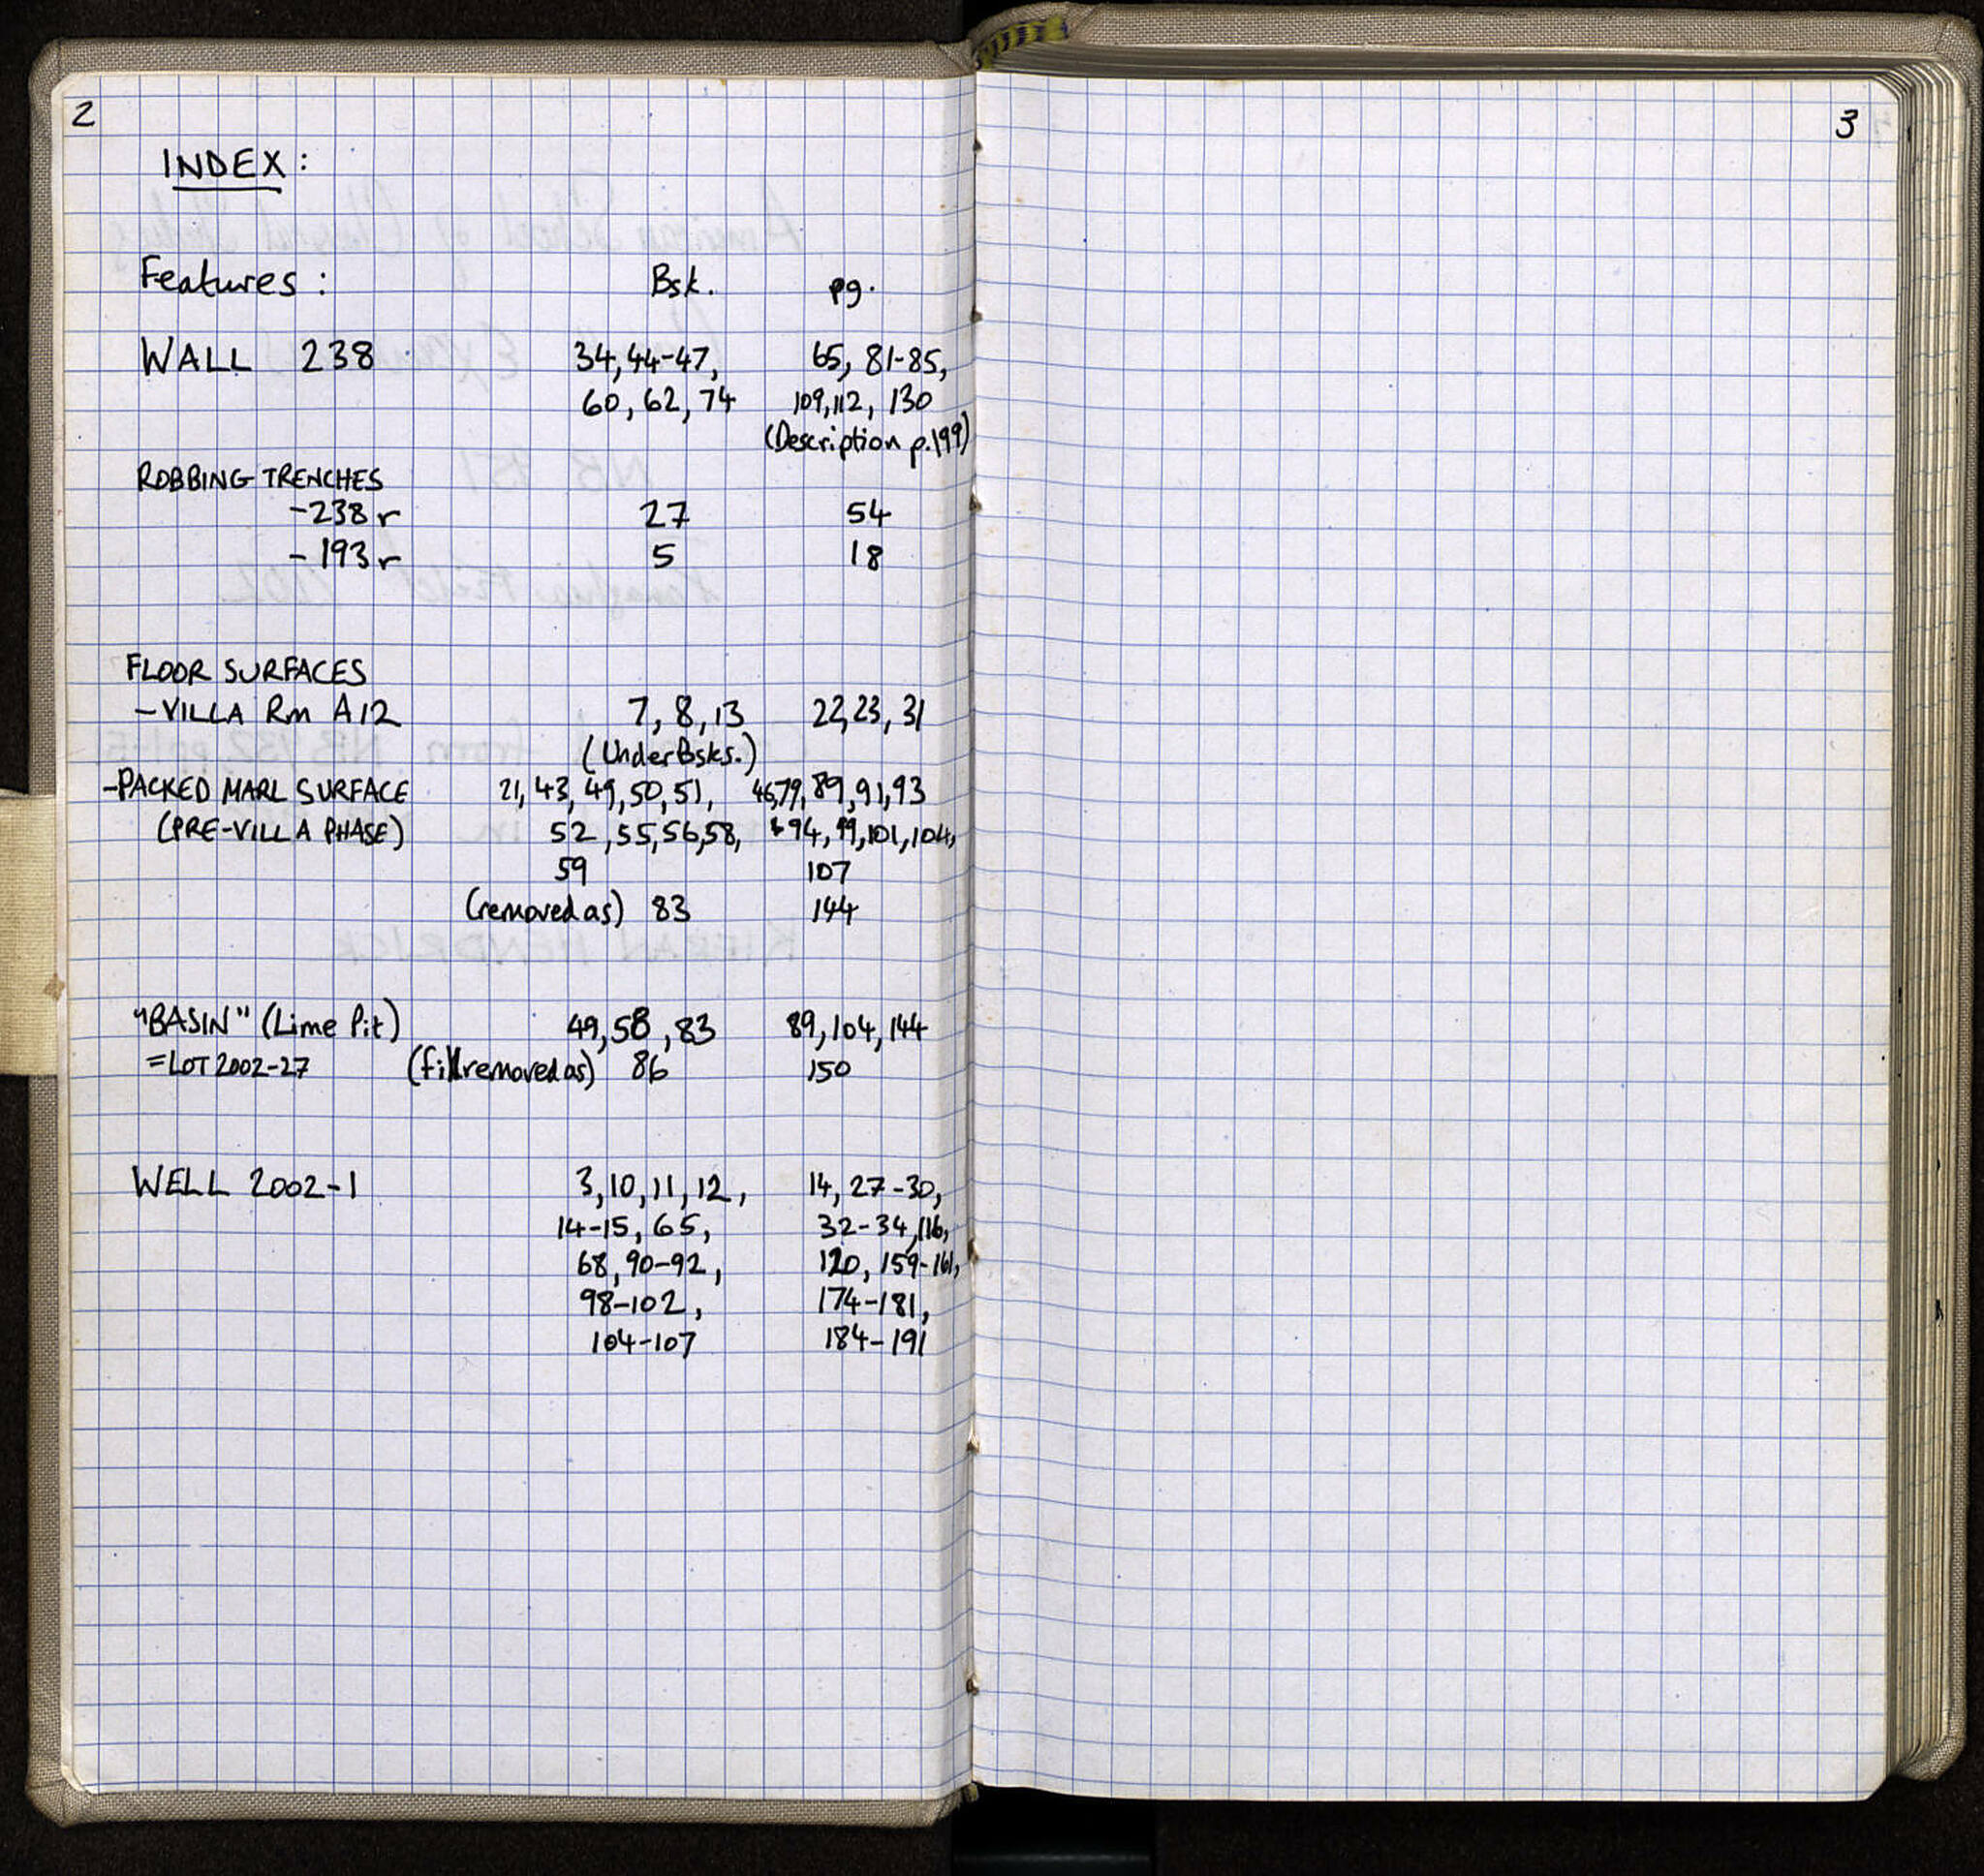 2
INDEX:
Features: Bsk. pg.
WALL 238 34, 44-47, 65, 81-85,
60, 62, 74 109, 112, 130
(Description p.199)
ROBBING TRENCHES
-238r 27 54
-193r 5 18
FLOOR SURFACES
-VILLA Rm A12 7, 8, 13 22, 23, 31
(Under Bsks.)
-PACKED MARL SURFACE 21, 43, 49, 50, 51, 46, 79, 89, 91, 93
(PRE-VILLA PHASE) 52, 55, 56, 58, 94, 99, 101, 104,
59 107
(removed as) 83 144
"BASIN" (Lime Pit) 49, 58, 83 89, 104, 144
=LOT 2002-27 (fill removed as) 86 150
WELL 2002-1 3, 10, 11, 12, 14, 27-30,
14-15, 65, 32-34, 116,
68, 90-92, 120, 159-161,
98-102, 174-181,
104-107 184-191
3